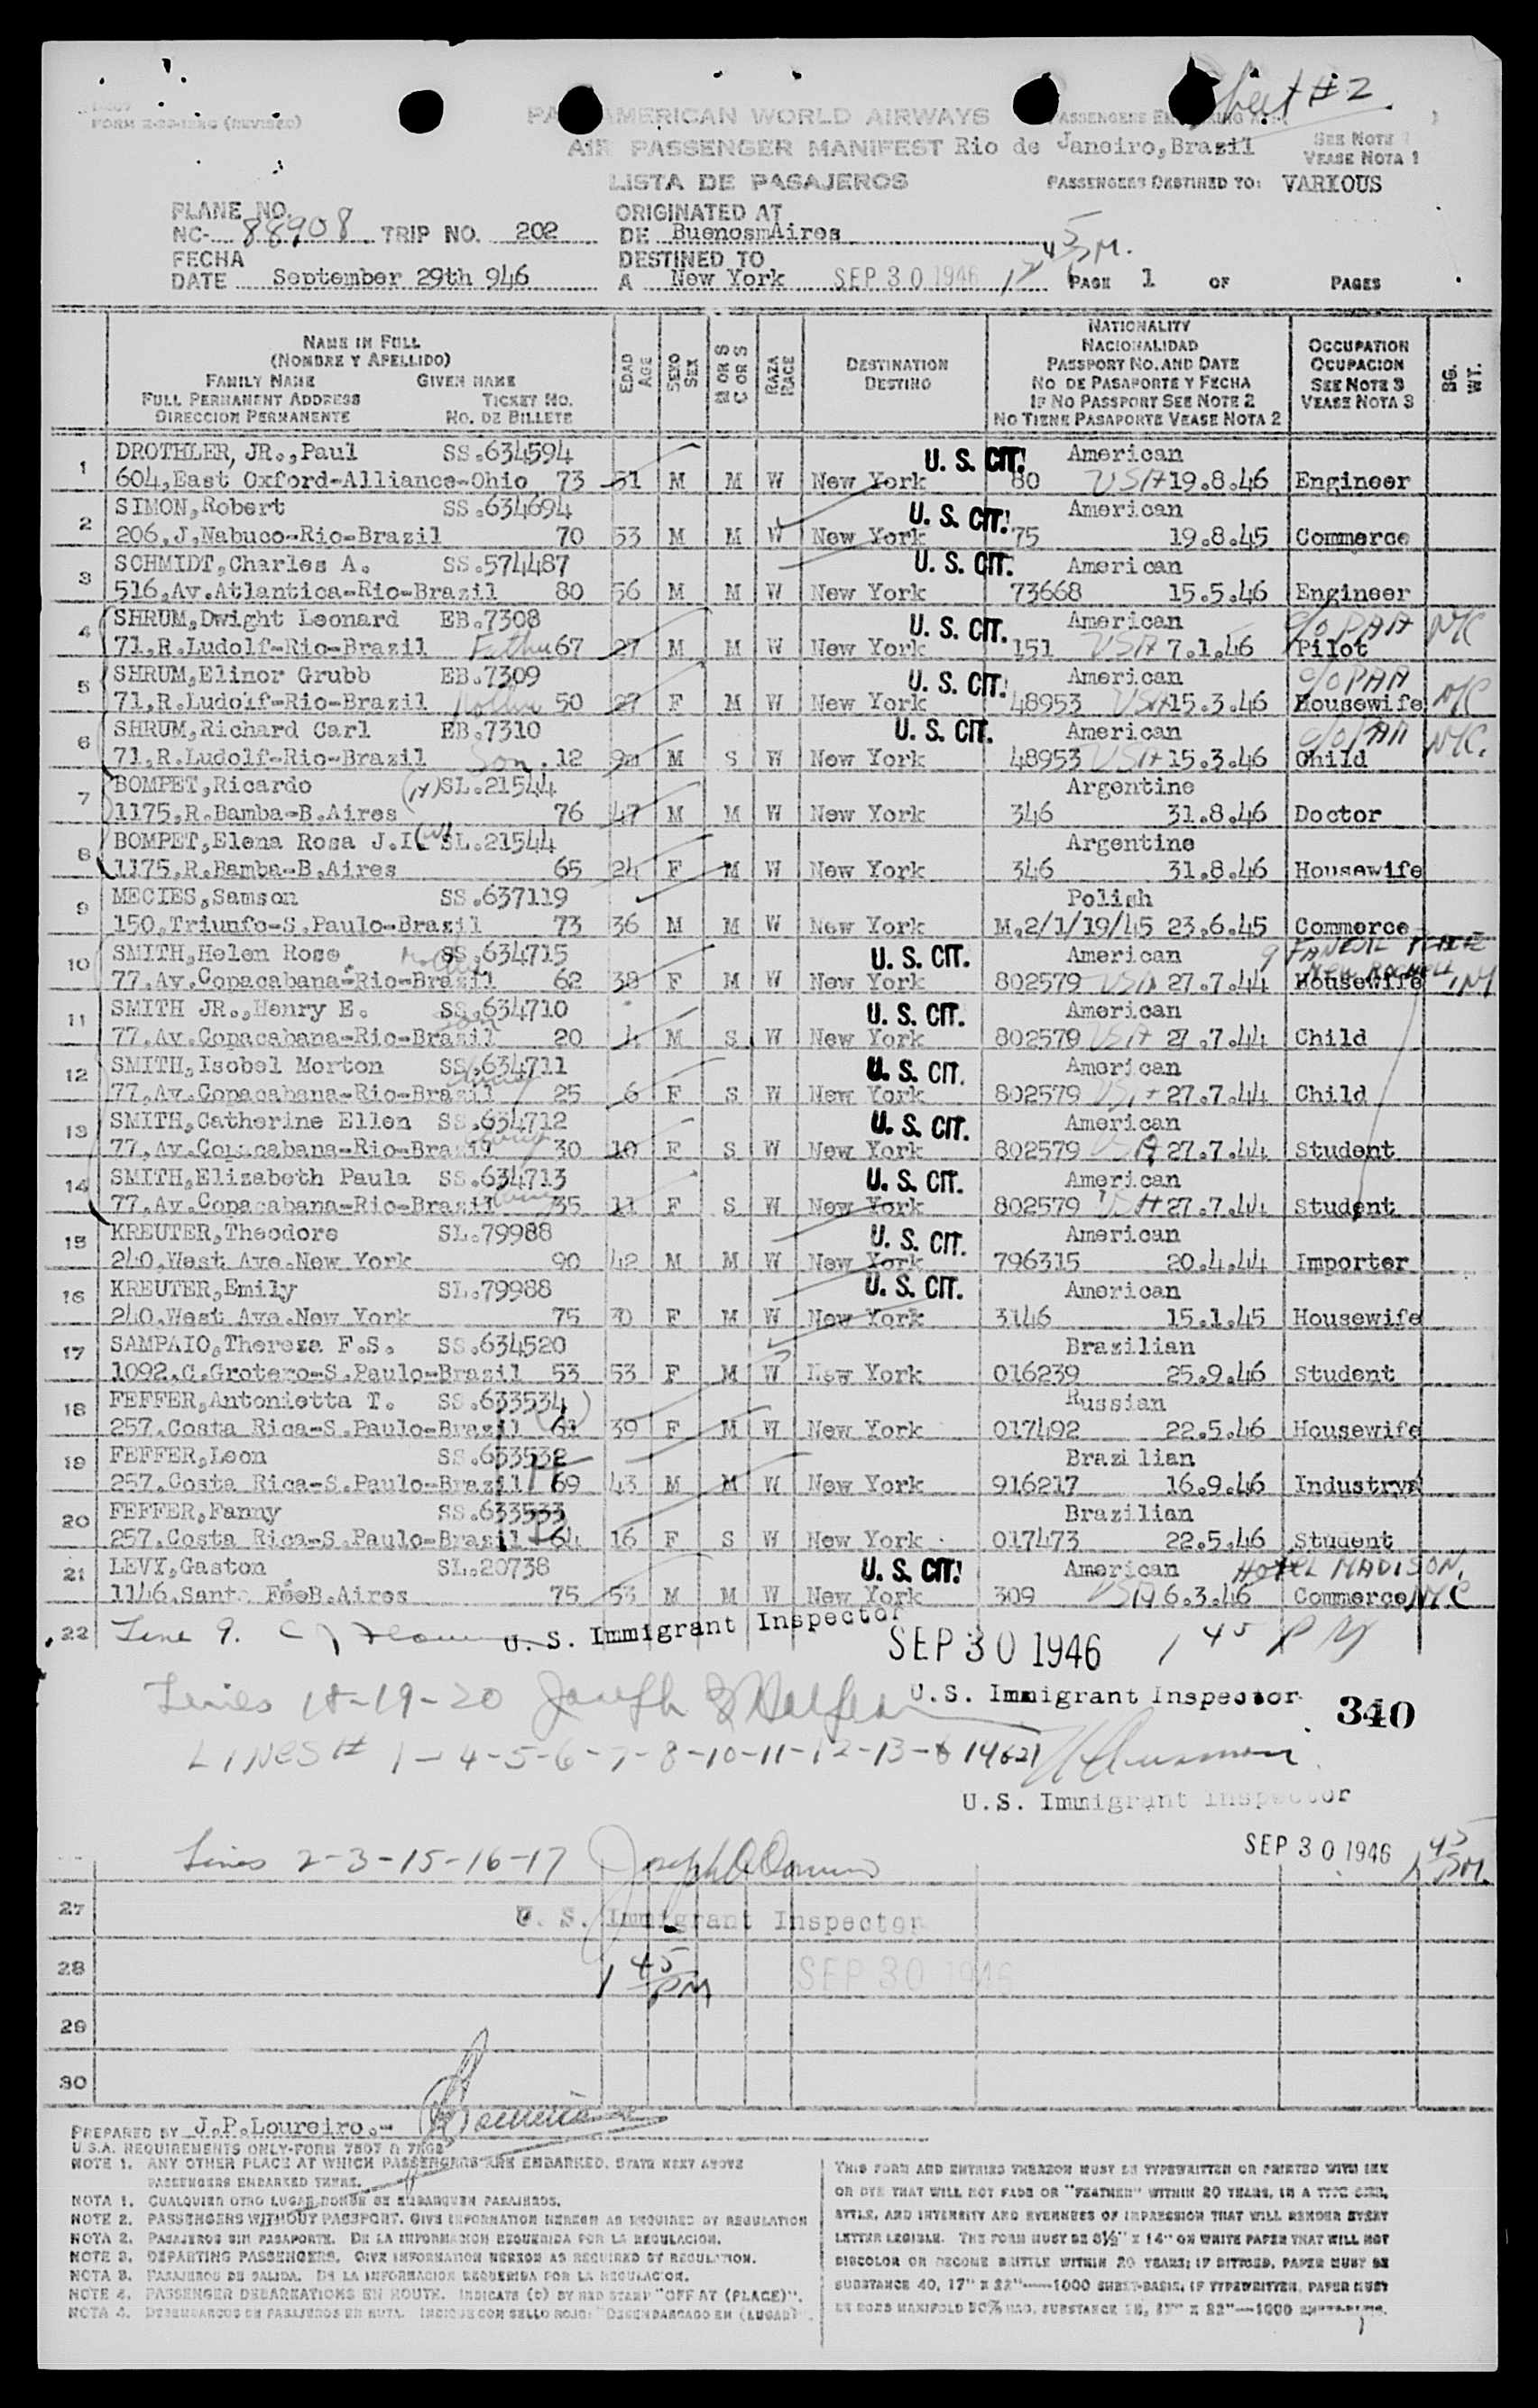 Sheet #2
FORM (REVISED)
PAN AMERICAN WORLD AIRWAYS
AIR PASSENGER MANIFEST Rio de Janeiro, Brazil
SEE NOTE 1
VEASE NOTA 1
LISTA DE PASAJEROS
PASSENGERS DESTINED TO: VARIOUS
PLANE NO.
NC- 88908 TRIP NO. 202
ORIGINATED AT
DE BuenosmAires
FECHA
DATE September 29th 946
DESTINED TO
A New York SEP 30 1946 1 45 PM.
PAGE 1 OF PAGES
NAME IN FULL
(NOMBRE Y APELLIDO)
FAMILY NAME GIVEN NAME
FULL PERMANENT ADDRESS TICKET NO.
DIRECCION PERMANENTE NO. DE BILLETE
EDAD AGE
SEXO SEX
M OR S C OR S
RAZA RACE
DESTINATION
DESTINO
NATIONALITY
NACIONALIDAD
PASSPORT NO. AND DATE
NO DE PASAPORTE Y FECHA
IF NO PASSPORT SEE NOTE 2
NO TIENE PASAPORTE VEASE NOTA 2
OCCUPATION
OCUPACION
SEE NOTE 3
VEASE NOTA 3
BG. WT.
1 DROTHLER, JR., Paul SS.634594 U. S. CIT. American
604, East Oxford-Alliance-Ohio 73 51 M M W New York 80 USA 19.8.46 Engineer
2 SIMON, Robert SS.634694 U. S. CIT. American
206, J, Nabuco-Rio-Brazil 70 53 M M W New York 75 19.8.45 Commerce
3 SCHMIDT, Charles A. SS.574487 U. S. CIT. American
516, Av. Atlantica-Rio-Brazil 80 56 M M W New York 73668 15.5.46 Engineer
4 SHRUM, Dwight Leonard EB.7308 U. S. CIT. American c/o PAA NYC
71, R. Ludolf-Rio-Brazil Father 67 27 M M W New York 151 USA 7.1.46 Pilot
5 SHRUM, Elinor Grubb EB.7309 U. S. CIT. American c/o PAA NYC
71, R. Ludolf-Rio-Brazil Mother 50 27 F M W New York 48953 USA 15.3.46 Housewife
6 SHRUM, Richard Carl EB.7310 U. S. CIT. American c/o PAA NYC.
71, R. Ludolf-Rio-Brazil Son . 12 9m M S W New York 48953 USA 15.3.46 Child
7 BOMPET, Ricardo (H) SL.21544 Argentine
1175, R. Bamba-B. Aires 76 47 M M W New York 346 31.8.46 Doctor
8 BOMPET, Elena Rosa J.I (W) SL.21544 Argentine
1175, R. Bamba-B. Aires 65 24 F M W New York 346 31.8.46 Housewife
9 MECIES, Samson SS.637119 Polish
150, Triunfo-S. Paulo-Brazil 73 36 M M W New York M.2/1/19/45 23.6.45 Commerce
10 SMITH, Helen Rose Mother SS.634715 U. S. CIT. American 9 PLACE NEW ROCHELLE, NY
77, Av. Copacabana-Rio-Brazil 62 38 F M W New York 802579 USA 27.7.44 Housewife
11 SMITH JR., Henry E. SS.634710 U. S. CIT. American
77, Av. Copacabana-Rio-Brazil Son 20 4 M S W New York 802579 USA 27.7.44 Child
12 SMITH, Isobel Morton SS.634711 U. S. CIT. American
77, Av. Copacabana-Rio-Brazil 25 6 F S W New York 802579 USA 27.7.44 Child
13 SMITH, Catherine Ellen SS.634712 U. S. CIT. American
77, Av. Copacabana-Rio-Brazil 30 10 F S W New York 802579 USA 27.7.44 Student
14 SMITH, Elizabeth Paula SS.634713 U. S. CIT. American
77, Av. Copacabana-Rio-Brazil 35 11 F S W New York 802579 USA 27.7.44 Student
15 KREUTER, Theodore SL.79988 U. S. CIT. American
240, West Ave. New York 90 42 M M W New York 796315 20.4.44 Importer
16 KREUTER, Emily SL.79988 U. S. CIT. American
240, West Ave. New York 75 30 F M W New York 3146 15.1.45 Housewife
17 SAMPAIO, Thereza F.S. SS.634520 Brazilian
1092, C. Grotero-S. Paulo-Brazil 53 53 F M W New York 016239 25.9.46 Student
18 FEFFER, Antonietta T. SS.633534 Russian
257, Costa Rica-S. Paulo-Brazil 61 39 F M W New York 017492 22.5.46 Housewife
19 FEFFER, Leon SS.633532 Brazilian
257, Costa Rica-S. Paulo-Brazil 69 43 M M W New York 916217 16.9.46 Industrya
20 FEFFER, Fanny SS.633533 Brazilian
257, Costa Rica-S. Paulo-Brazil 64 16 F S W New York 017473 22.5.46 Student
21 LEVY, Gaston SL.20738 U. S. CIT. American HOTEL MADISON,
1146, Santa FeeB. Aires 75 53 M M W New York 309 USA 6.3.46 Commerce NYC
22 Line 9. U. S. Immigrant Inspector SEP 30 1946 1 45 PM
Lines 18-19-20 Joseph U.S. Immigrant Inspector 340
LINES # 1-4-5-6-7-8-10-11-12-13-&14&21
U.S. Immigrant Inspector
SEP 30 1946 1 45 PM.
Lines 2-3-15-16-17 Joseph
27
U. S. Immigrant Inspector
28 1 45 PM SEP 30 1946
29
30
PREPARED BY J.P. Loureiro.-
U S.A. REQUIREMENTS ONLY-FORM 7507 &
NOTE 1. ANY OTHER PLACE AT WHICH PASSENGERS ARE EMBARKED, STATE NEXT ABOVE
PASSENGERS EMBARKED THERE.
NOTA 1. CUALQUIER OTRO LUGAR DONDE SE EMBARQUEN PASAJEROS.
NOTE 2. PASSENGERS WITHOUT PASSPORT. GIVE INFORMATION HEREON AS REQUIRED BY REGULATION
NOTA 2. PASAJEROS SIN PASAPORTE. DE LA INFORMACION REQUERIDA POR LA REGULACION.
NOTE 3. DEPARTING PASSENGERS. GIVE INFORMATION HEREON AS REQUIRED BY REGULATION.
NOTA 3. PASAJEROS DE SALIDA. DE LA INFORMACION REQUERIDA POR LA REGULACION.
NOTE 4. PASSENGER DEBARKATIONS EN ROUTE. INDICATE (C) BY RED STAMP "OFF AT (PLACE)".
NOTA 4. DESEMBARCOS DE PASAJEROS EN RUTA. INDIQUE CON SELLO ROJO: "DESEMBARCADO EN (LUGAR)".
THIS FORM AND ENTRIES THEREON MUST BE TYPEWRITTEN OR PRINTED WITH INK
OR DYE THAT WILL NOT FADE OR "FEATHER" WITHIN 20 YEARS, IN A TYPE SIZE,
STYLE, AND INTENSITY AND EVENNESS OF IMPRESSION THAT WILL RENDER EVERY
LETTER LEGIBLE. THE FORM MUST BE 8½" X 14" ON WHITE PAPER THAT WILL NOT
DISCOLOR OR BECOME BRITTLE WITHIN 20 YEARS; IF DITTOED, PAPER MUST BE
SUBSTANCE 40, 17" X 22"—1000 SHEET-BASIS, IF TYPEWRITTEN, PAPER MUST
BE BOND MANIFOLD 50% RAG, SUBSTANCE 17" X 22"—1000